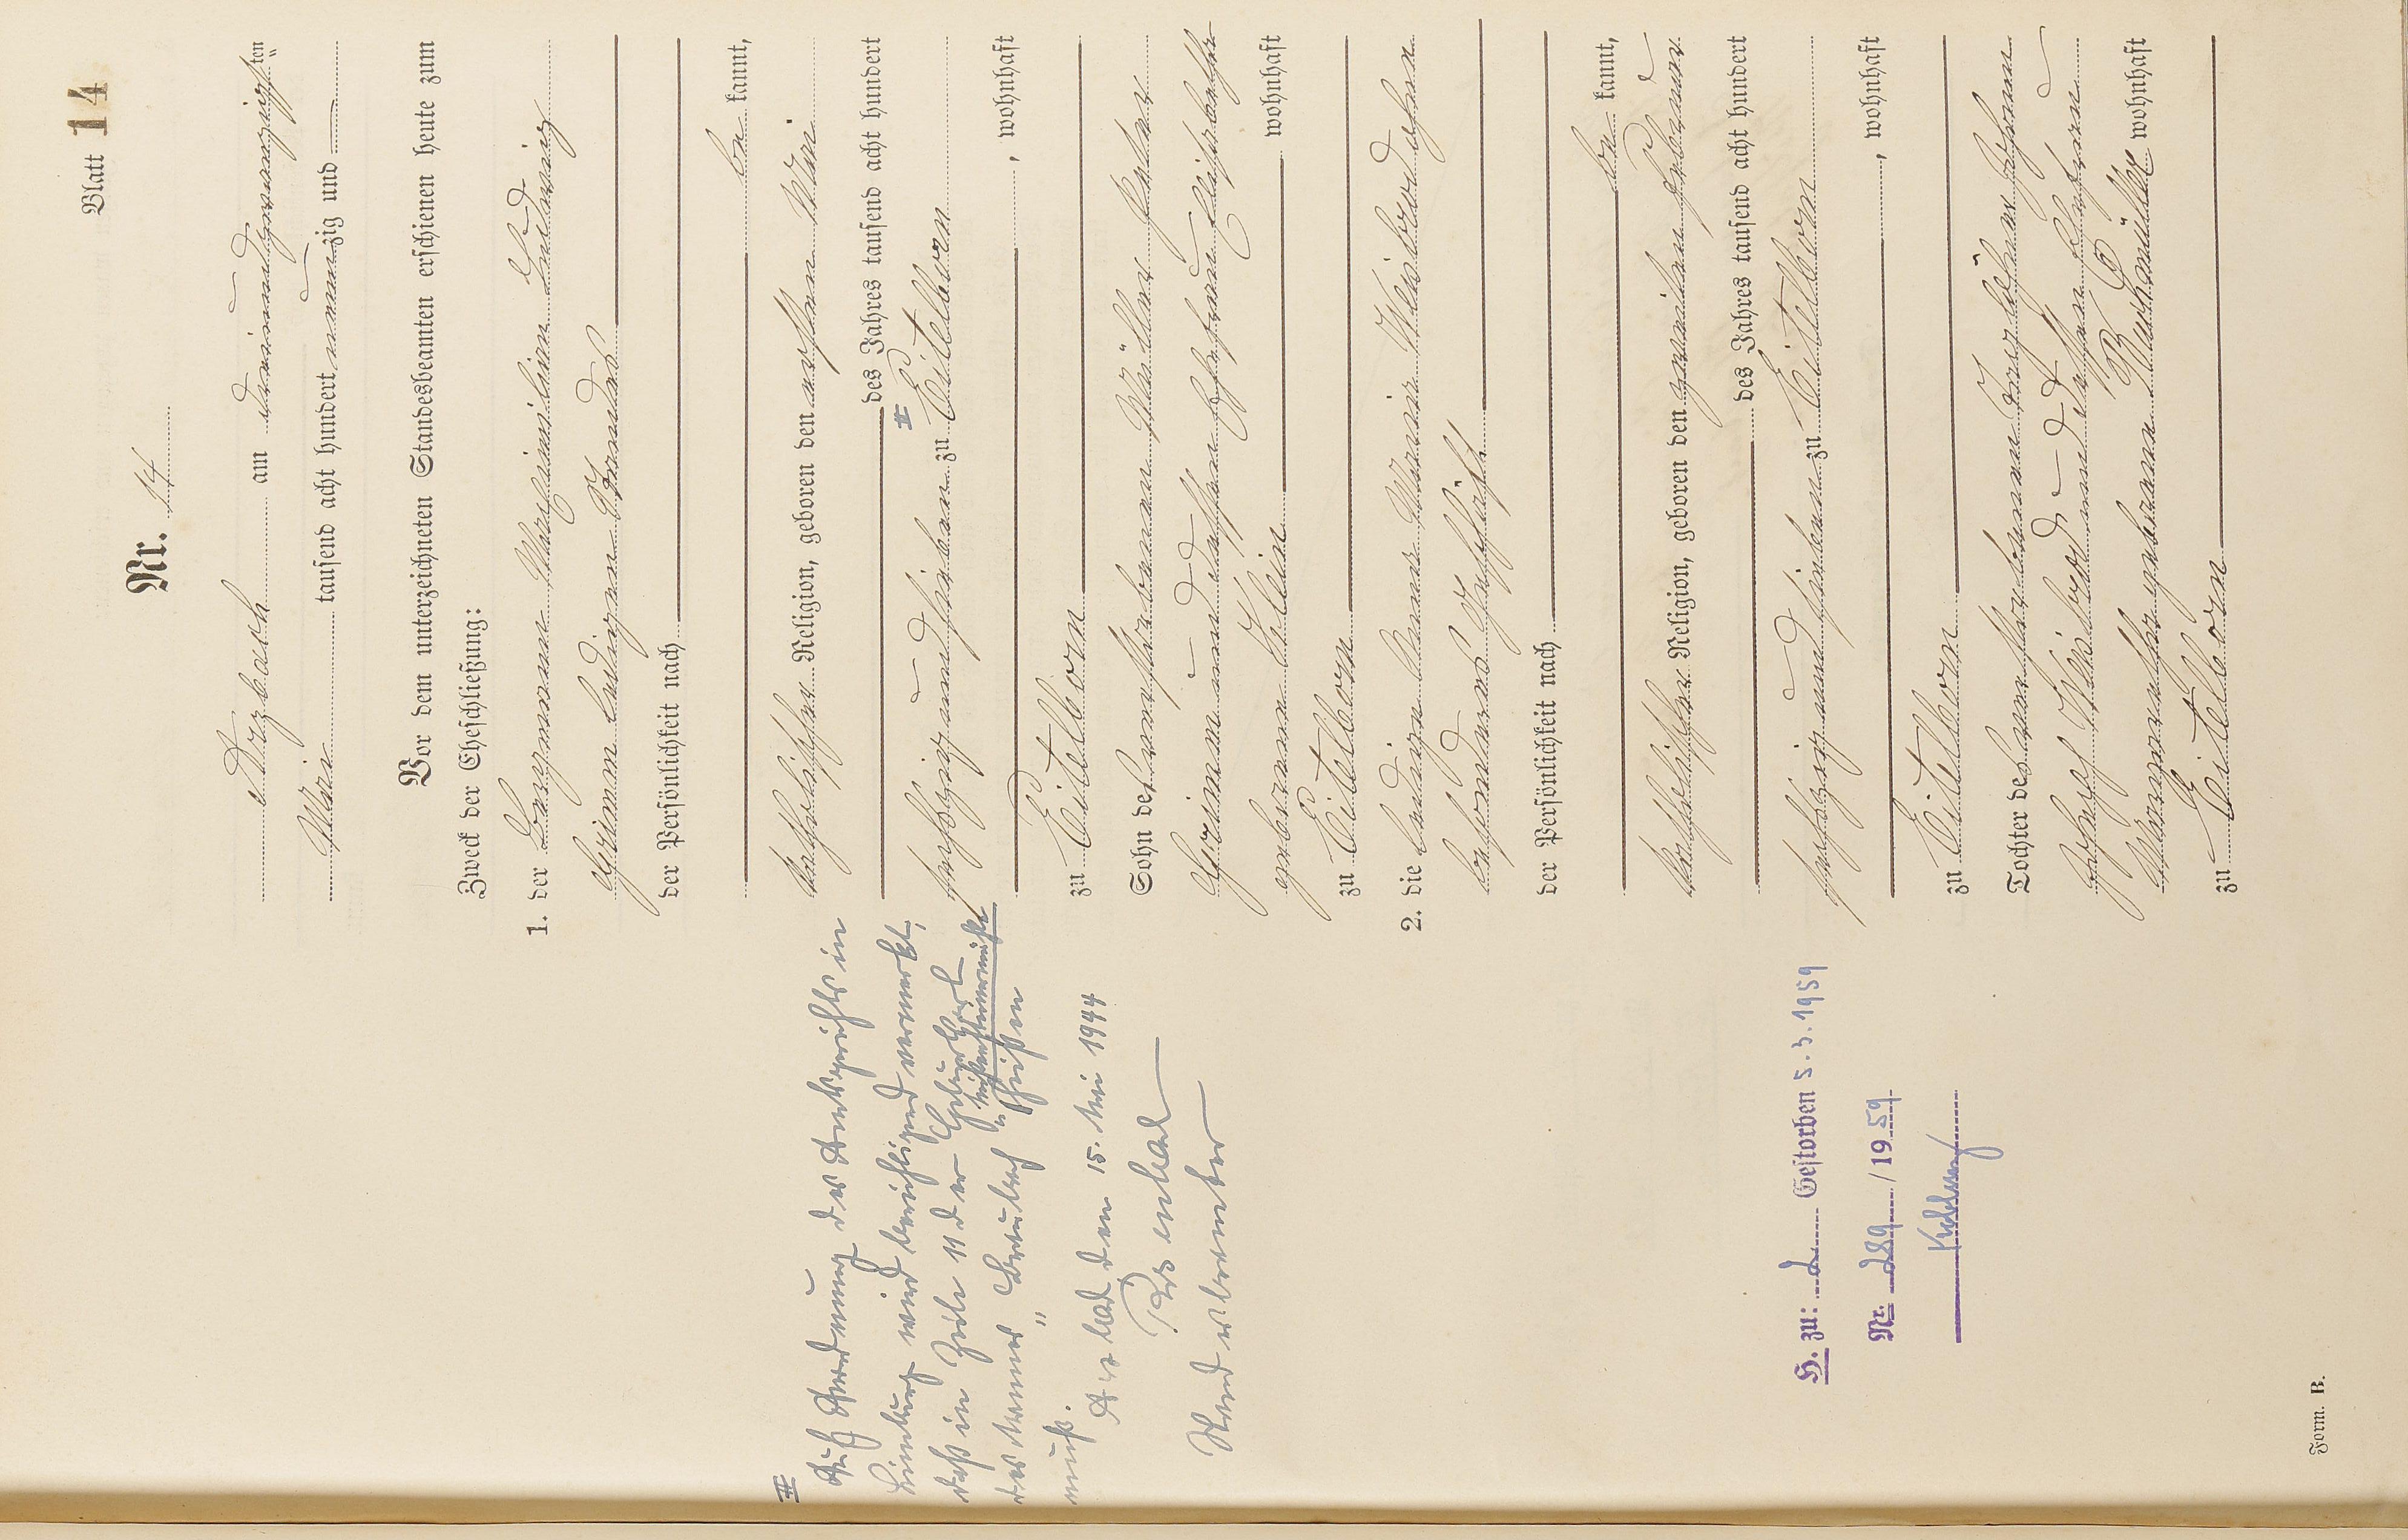 Blatt 14
Nr. 14
Arzbach am dreiundzwanzigsten
Mai tausend acht hundert neunzig und
Vor dem unterzeichneten Standesbeamten erschienen heute zum
Zweck der Eheschließung:
1. der Bergmann Maximilian Ludwig
Grimm ledigen Standes
der Persönlichkeit nach
be kannt,
katholischer Religion, geboren den ersten Mai
des Jahres tausend acht hundert
sechszig und sieben zu # Eitelborn
, wohnhaft
zu Eitelborn
Sohn des verstorbenen
Grimm und dessen Ehefrau Elisabetha
geborenen Klein wohnhaft
zu Eitelborn
2. die ledige Anna Maria Weisbrod ohne
besonderes Geschäft
der Persönlichkeit nach
be kannt,
katholischer Religion, geboren den zweiten Februar
des Jahres tausend acht hundert
sechszig und sieben zu Eitelborn
, wohnhaft
zu Eitelborn
Tochter des verstorbenen
Joseph Weisbrod und dessen Ehefrau
Margaretha geborenen wohnhaft
zu Eitelborn
#
Auf Anordnung des Amtsgerichts in
Limburg wird berichtigend vermerkt,
daß in Zeile 11 der Geburtsort
des Mannes "
" heißen
muß.
den 15. Mai 1944
Standesbeamter
H. zu: 2 Gestorben 5.3.1959
Nr. 289/1959
Form. B.